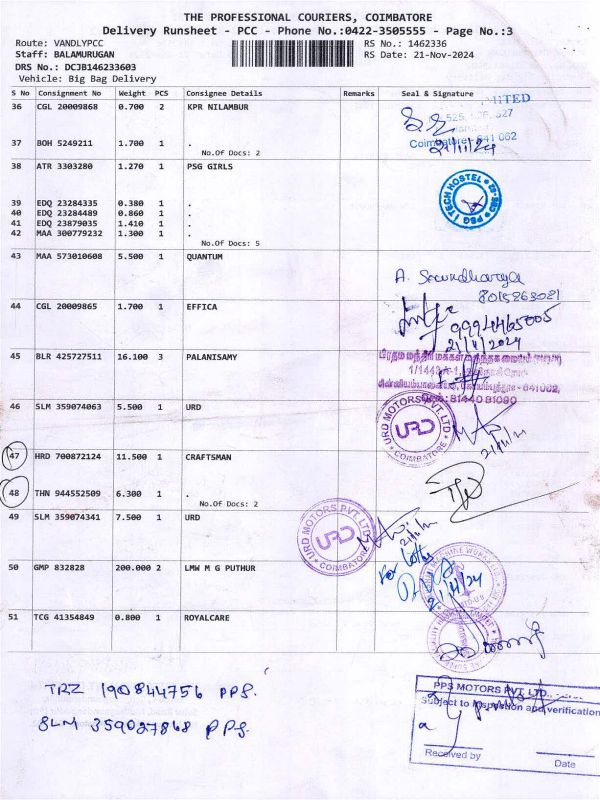 THE PROFESSIONAL COURIERS, COIMBATORE
Delivery Runsheet - PCC - Phone No.:0422-3505555 - Page No.:3
Route: VANDLYPCC RS No.: 1462336
Staff: BALAMURUGAN RS Date: 21-Nov-2024
DRS No.: DCJB146233603
Vehicle: Big Bag Delivery
S No Consignment No Weight PCS Consignee Details Remarks Seal & Signature
36 CGL 20009868 0.700 2 KPR NILAMBUR
Coimbatore 641 062
37 BOH 5249211 1.700 1 .
21/11/24
No.Of Docs: 2
38 ATR 3303280 1.270 1 PSG GIRLS
PSG I TECH HOSTEL
39 EDQ 23284335 0.380 1 .
40 EDQ 23284489 0.860 1 .
41 EDQ 23879035 1.410 1 .
42 MAA 300779232 1.300 1 .
No.Of Docs: 5
43 MAA 573010608 5.500 1 QUANTUM
A. Soundharya
8015263021
44 CGL 20009865 1.700 1 EFFICA
21/11/2024
45 BLR 425727511 16.100 3 PALANISAMY
81440 81090
46 SLM 359074063 5.500 1 URD
URD MOTORS PVT. LTD
URD
COIMBATORE
47 HRD 700872124 11.500 1 CRAFTSMAN
48 THN 944552509 6.300 1 .
No.Of Docs: 2
49 SLM 359074341 7.500 1 URD
URD MOTORS PVT. LTD
URD
COIMBATORE
50 GMP 832828 200.000 2 LMW M G PUTHUR
21/11/24
51 TCG 41354849 0.800 1 ROYALCARE
TRZ 190844756 PPS.
SLM 359027868 PPS.
PPS MOTORS PVT. LTD.,
Subject to Inspection and verification
Received by Date